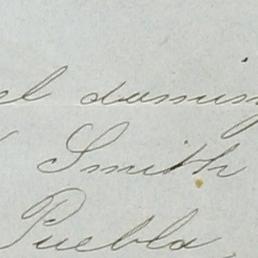 el doming
Smith
Puebla,